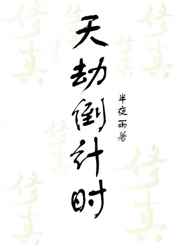 天劫倒计时
半夜雨著